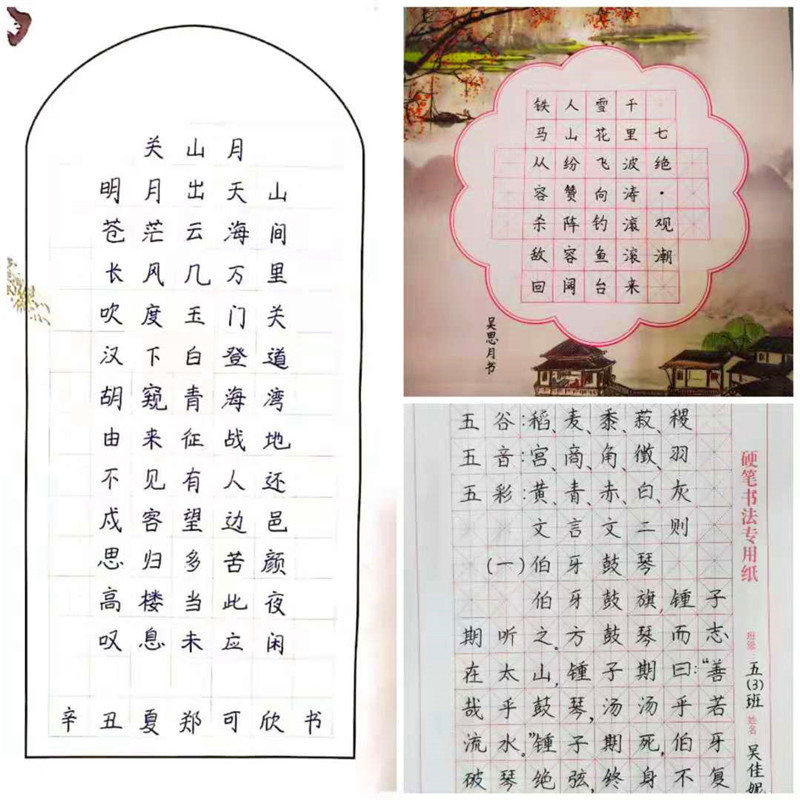 关山月
明月出天山
苍茫云海间
长风几万里
吹度玉门关
汉下白登道
胡窥青海湾
由来征战地
不见有人还
戍客望边邑
思归多苦颜
高楼当此夜
叹息未应闲
辛丑夏郑可欣书
七绝·观潮
千里波涛滚滚来
雪花飞向钓鱼台
人山纷赞阵容阔
铁马从容杀敌回
吴思月书
五谷:稻、麦、黍、菽、稷
五音:宫、商、角、徵、羽
五彩:黄、青、赤、白、灰
文言文二则
(一)伯牙鼓琴
伯牙鼓旗,锺子
期听之。方鼓琴而志
在太山,锺子期曰:“善
哉乎鼓琴,汤汤乎若
流水。”锺子期死,伯牙
破琴绝弦,终身不复
硬笔书法专用纸
班级:五(3)班 姓名 吴佳妮